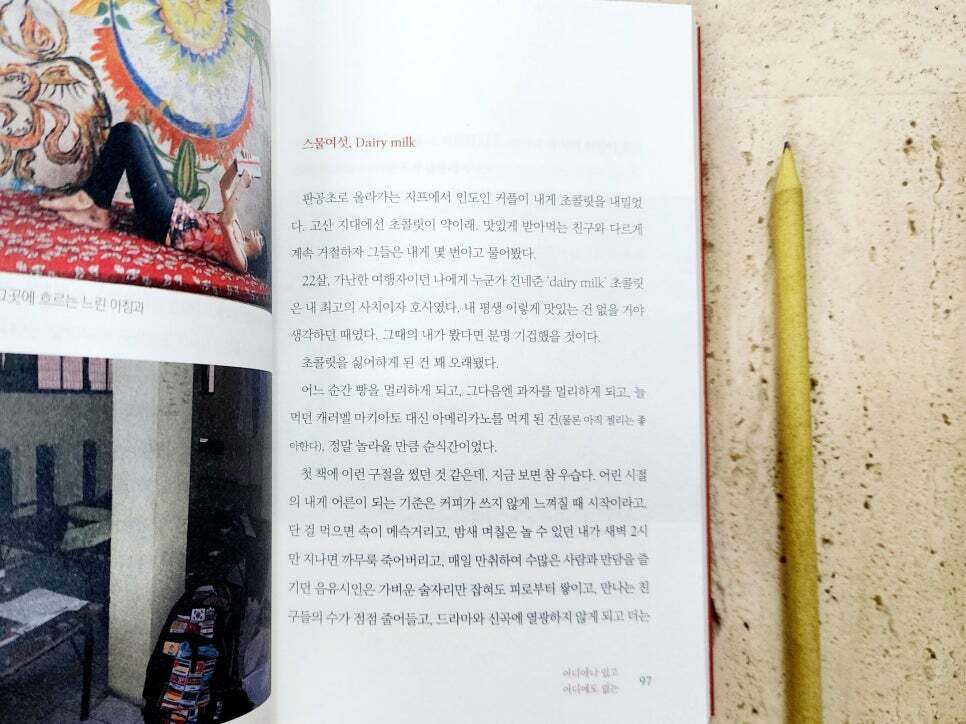 그곳에 흐르는 느린 아침과
스물여섯, Dairy milk
판공초로 올라가는 지프에서 인도인 커플이 내게 초콜릿을 내밀었
다. 고산 지대에선 초콜릿이 약이래. 맛있게 받아먹는 친구와 다르게
계속 거절하자 그들은 내게 몇 번이고 물어봤다.
22살, 가난한 여행자이던 나에게 누군가 건네준 ‘dairy milk’ 초콜릿
은 내 최고의 사치이자 호사였다. 내 평생 이렇게 맛있는 건 없을 거야
생각하던 때였다. 그때의 내가 봤다면 분명 기겁했을 것이다.
초콜릿을 싫어하게 된 건 꽤 오래됐다.
어느 순간 빵을 멀리하게 되고, 그다음엔 과자를 멀리하게 되고, 늘
먹던 캐러멜 마키아토 대신 아메리카노를 먹게 된 건(물론 아직 젤리는 좋
아한다), 정말 놀라울 만큼 순식간이었다.
첫 책에 이런 구절을 썼던 것 같은데, 지금 보면 참 우습다. 어린 시절
의 내게 어른이 되는 기준은 커피가 쓰지 않게 느껴질 때 시작이라고.
단 걸 먹으면 속이 메슥거리고, 밤새 며칠은 놀 수 있던 내가 새벽 2시
만 지나면 까무룩 죽어버리고, 매일 만취하여 수많은 사람과 만담을 즐
기던 음유시인은 가벼운 술자리만 잡혀도 피로부터 쌓이고, 만나는 친
구들의 수가 점점 줄어들고, 드라마와 신곡에 열광하지 않게 되고 더는
어디에나 있고
어디에도 없는
97